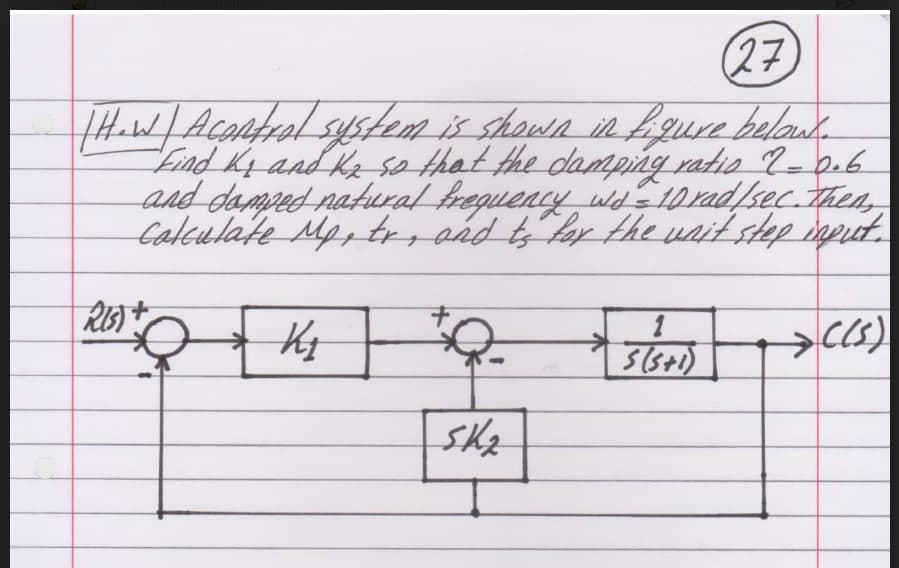 27
H.W A control system is shown in figure below.
Find K1 and K2 so that the damping ratio ζ = 0.6
and damped natural frequency ωd = 10 rad/sec. Then,
Calculate Mp, tr, and ts for the unit step input.
R(s) + K1 + 1 C(s)
- - s(s+1)
sK2